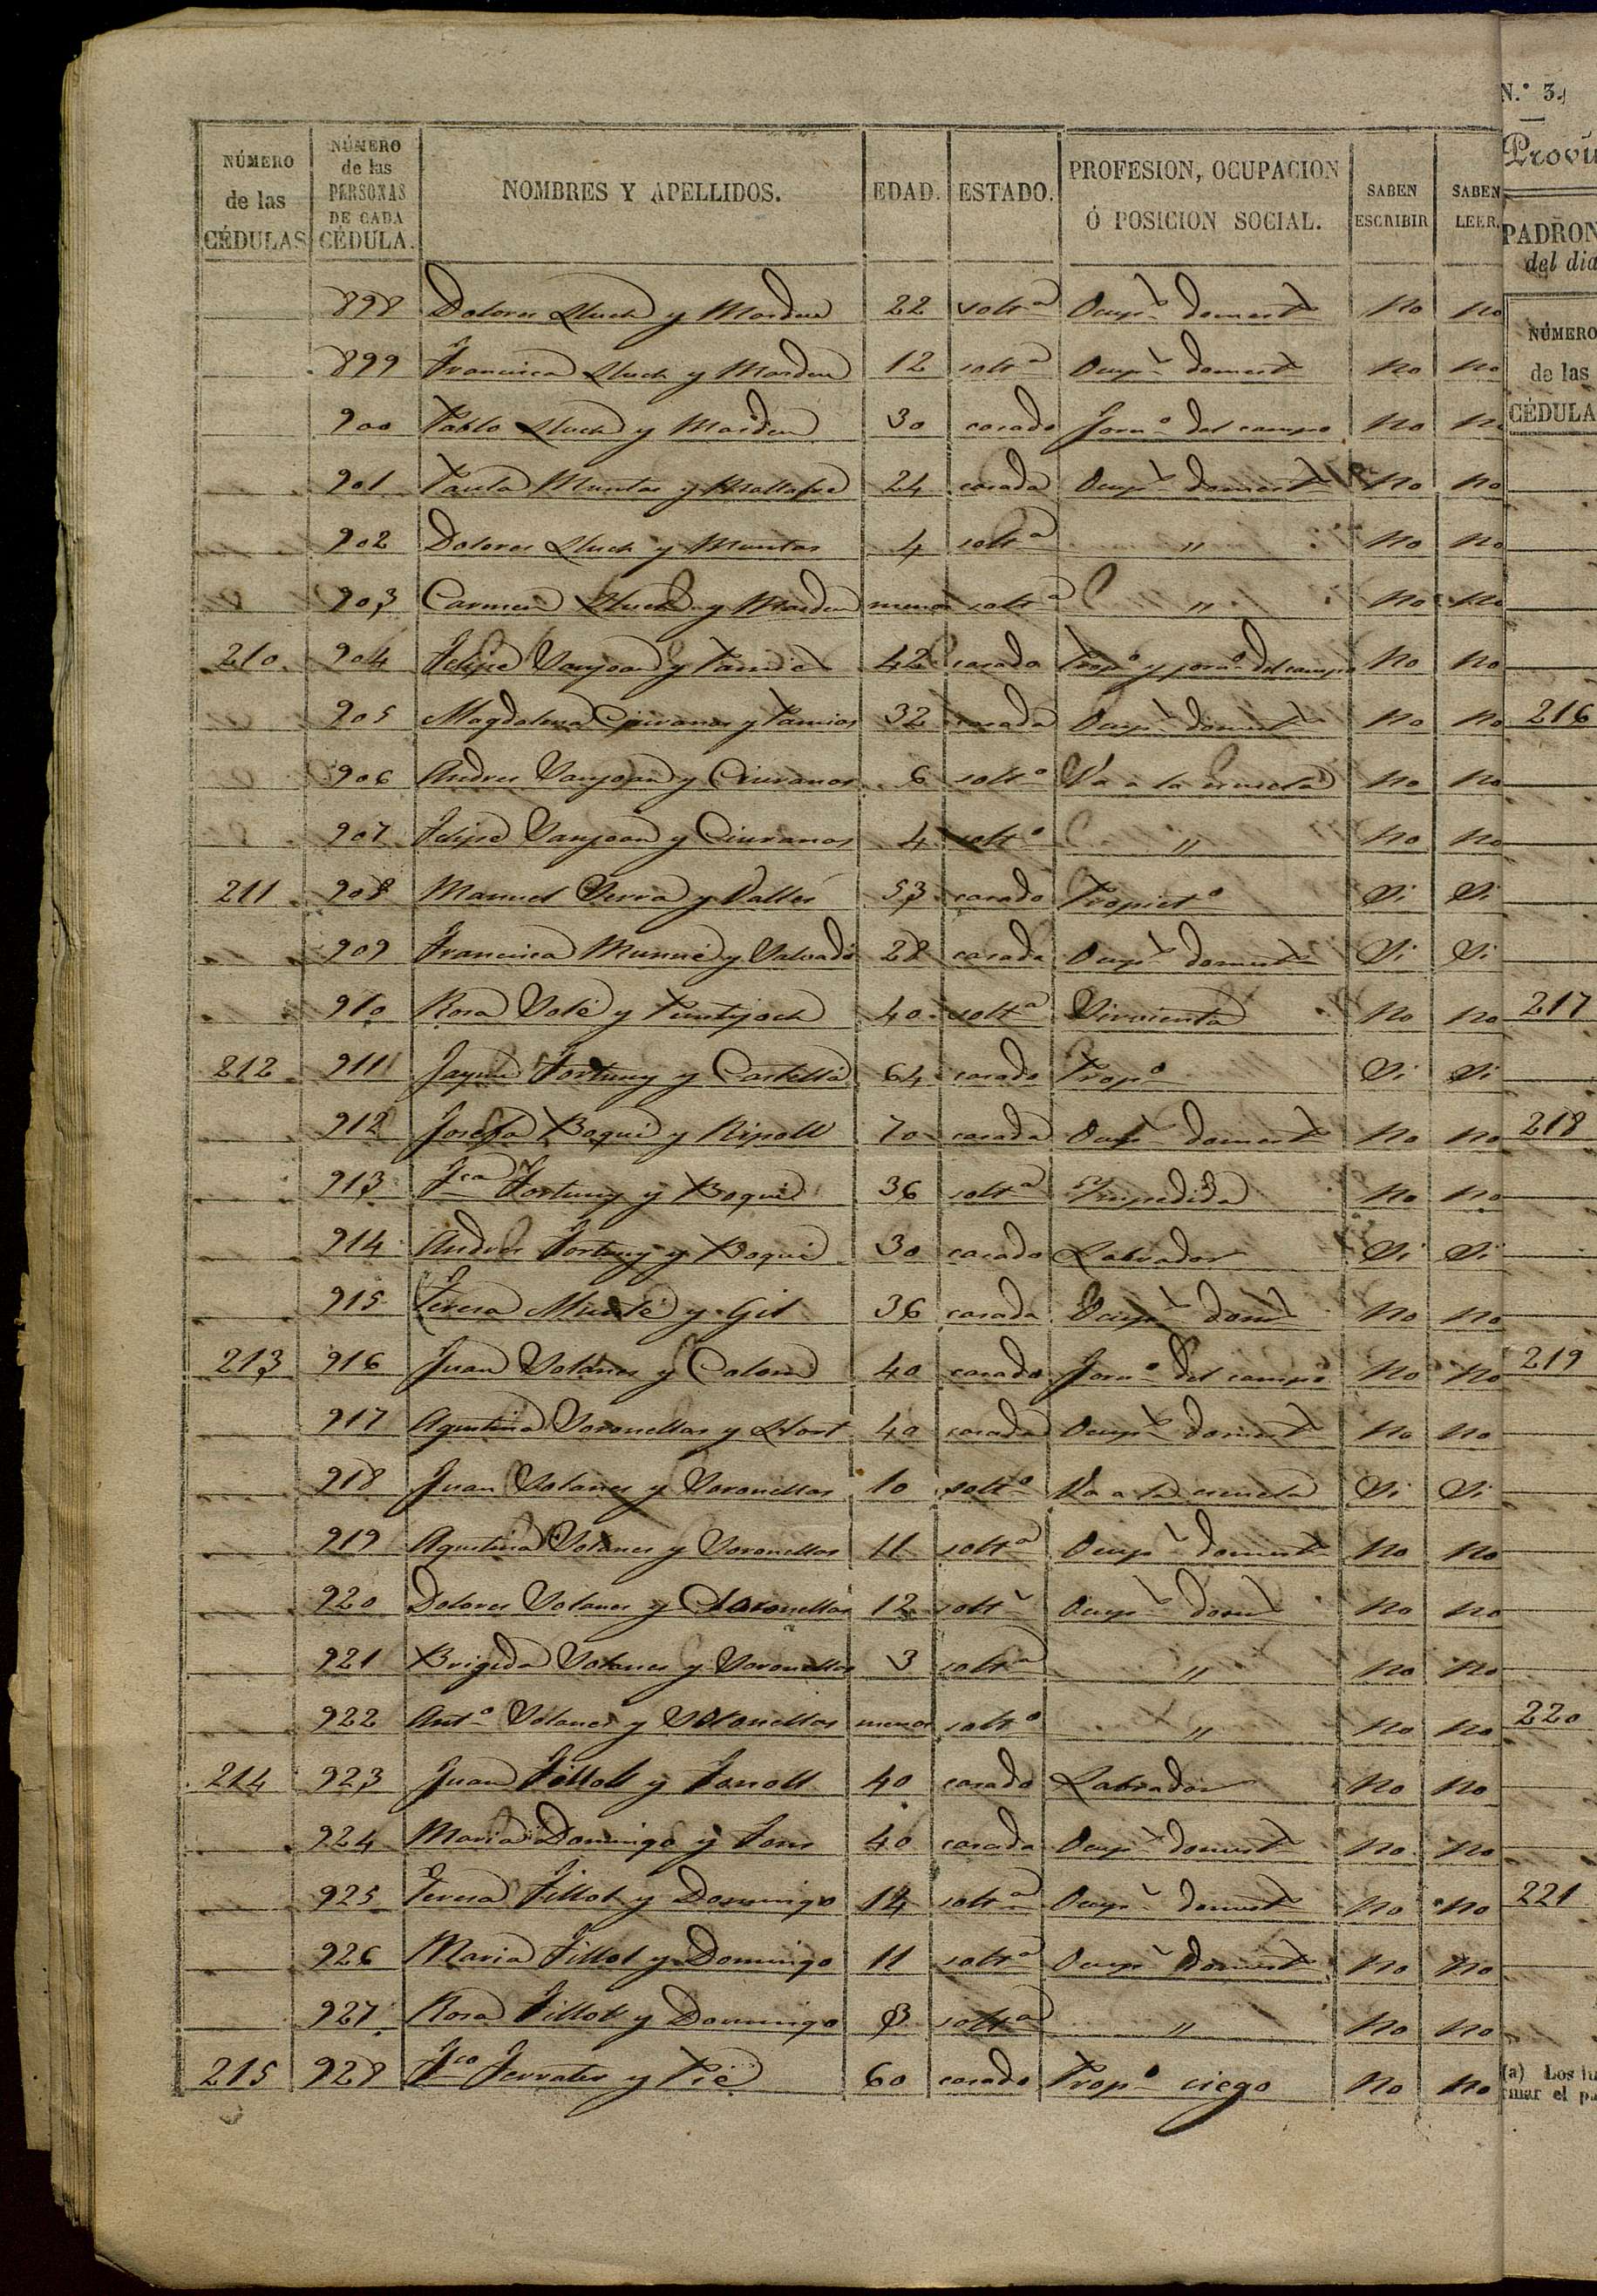 NÚMERO de las CÉDULAS NÚMERO de las PERSONAS DE CADA CÉDULA. NOMBRES Y APELLIDOS. EDAD. ESTADO. PROFESION, OCUPACION Ó POSICION SOCIAL. SABEN ESCRIBIR SABEN LEER.
898 Dolores Lluch y 22 solt.a Ocup.s domest.s No no
899 Francisca Lluch y 12 solt.a Ocup.s domest.s no no
900 Pablo Lluch y 30 casado Jorn.o del campo No no
901 Paula Muntas y Mallafré 24 casada Ocup.s domest.s No No
902 Dolores Lluch y Muntas 4 solt.a " No No
903 Carmen Lluch y menor solt.a " No No
210 904 Felipe Sanjoan y 42 casado Prop.o y jorn.o del campo No No
905 Magdalena Ciuranas y 32 casada Ocup.s domest.s No No
906 Andres Sanjoan y Ciuranas 6 solt.o Va a la escuela No No
907 Felipe Sanjoan y Ciuranas 4 solt.o " No No
211 908 Manuel Serra y Vallés 53 casado Propiet.o Si Si
909 Francisca Munné y Salvadó 28 casada Ocup.s domest.s Si Si
910 Rosa Solé y Puntijoch 40 solt.a Sirvienta No no
212 911 Jayme Fortuny y Castellá 64 casado Prop.o Si Si
912 Josefa Boqué y Ripoll 70 casada Ocup.s domest.s No no
913 F.ca Fortuny y Boqué 36 solt.a Impedida No no
914 Andres Fortuny y Boqué 30 casado Labrador Si Si
915 Teresa y Gil 36 casada Ocup.s dom.s No No
213 916 Juan Solanes y Colom 40 casado Jorn.o del campo No No
917 Agustina Soronellas y Llort 40 casada Ocup.s domest.s No No
918 Juan Solanes y Soronellas 10 solt.o Va a la escuela Si Si
919 Agustina Solanes y Soronellas 11 solt.a Ocup.s domest.s No No
920 Dolores Solanes y Soronellas 12 solt.a Ocup.s dom.s No no
921 Brigida Solanes y Soronellas 3 solt.a " no No
922 Ant.o Solanes y Soronellas menor solt.o " No No
214 923 Juan Fillolt y 40 casado Labrador No No
924 Maria Domingo y 40 casada Ocup.s domest.s No No
925 Teresa Fillol y Domingo 14 solt.a Ocup.s domest.s No No
926 Maria Fillol y Domingo 11 solt.a Ocup.s domest.s No No
927 Rosa Fillol y Domingo 3 solt.a " No No
215 928 F.co Ferrater y Pié 60 casado Prop.o ciego No No
N.° 3.
PADRON
del dia
NÚMERO
de las
CÉDULA
216
217
218
219
220
221
(a) Los
mar el